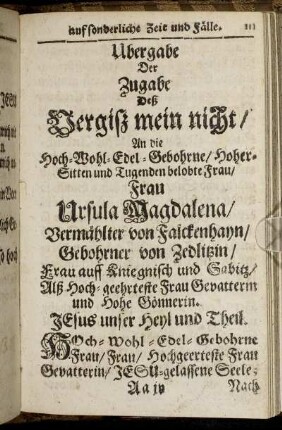 auf sonderliche Zeit und Fälle.
Ubergabe
Der
Zugabe
Deß
Vergiß mein nicht/
An die
Hoch-Wohl-Edel-Gebohrne/ Hoher-
Sitten und Tugenden belobte Frau/
Frau
Ursula Magdalena/
Vermählter von Falckenhayn/
Gebohrner von Zedlitzin/
Frau auff Kniegnisch und Sabitz/
Alß Hoch-geehrteste Frau Gevatterin
und Hohe Gönnerin.
JEsus unser Heyl und Theil.
HOch-Wohl-Edel-Gebohrne
Frau/ Frau/ Hochgeerteste Frau
Gevatterin/ JESU-gelassene Seele/
Aa iv Nach